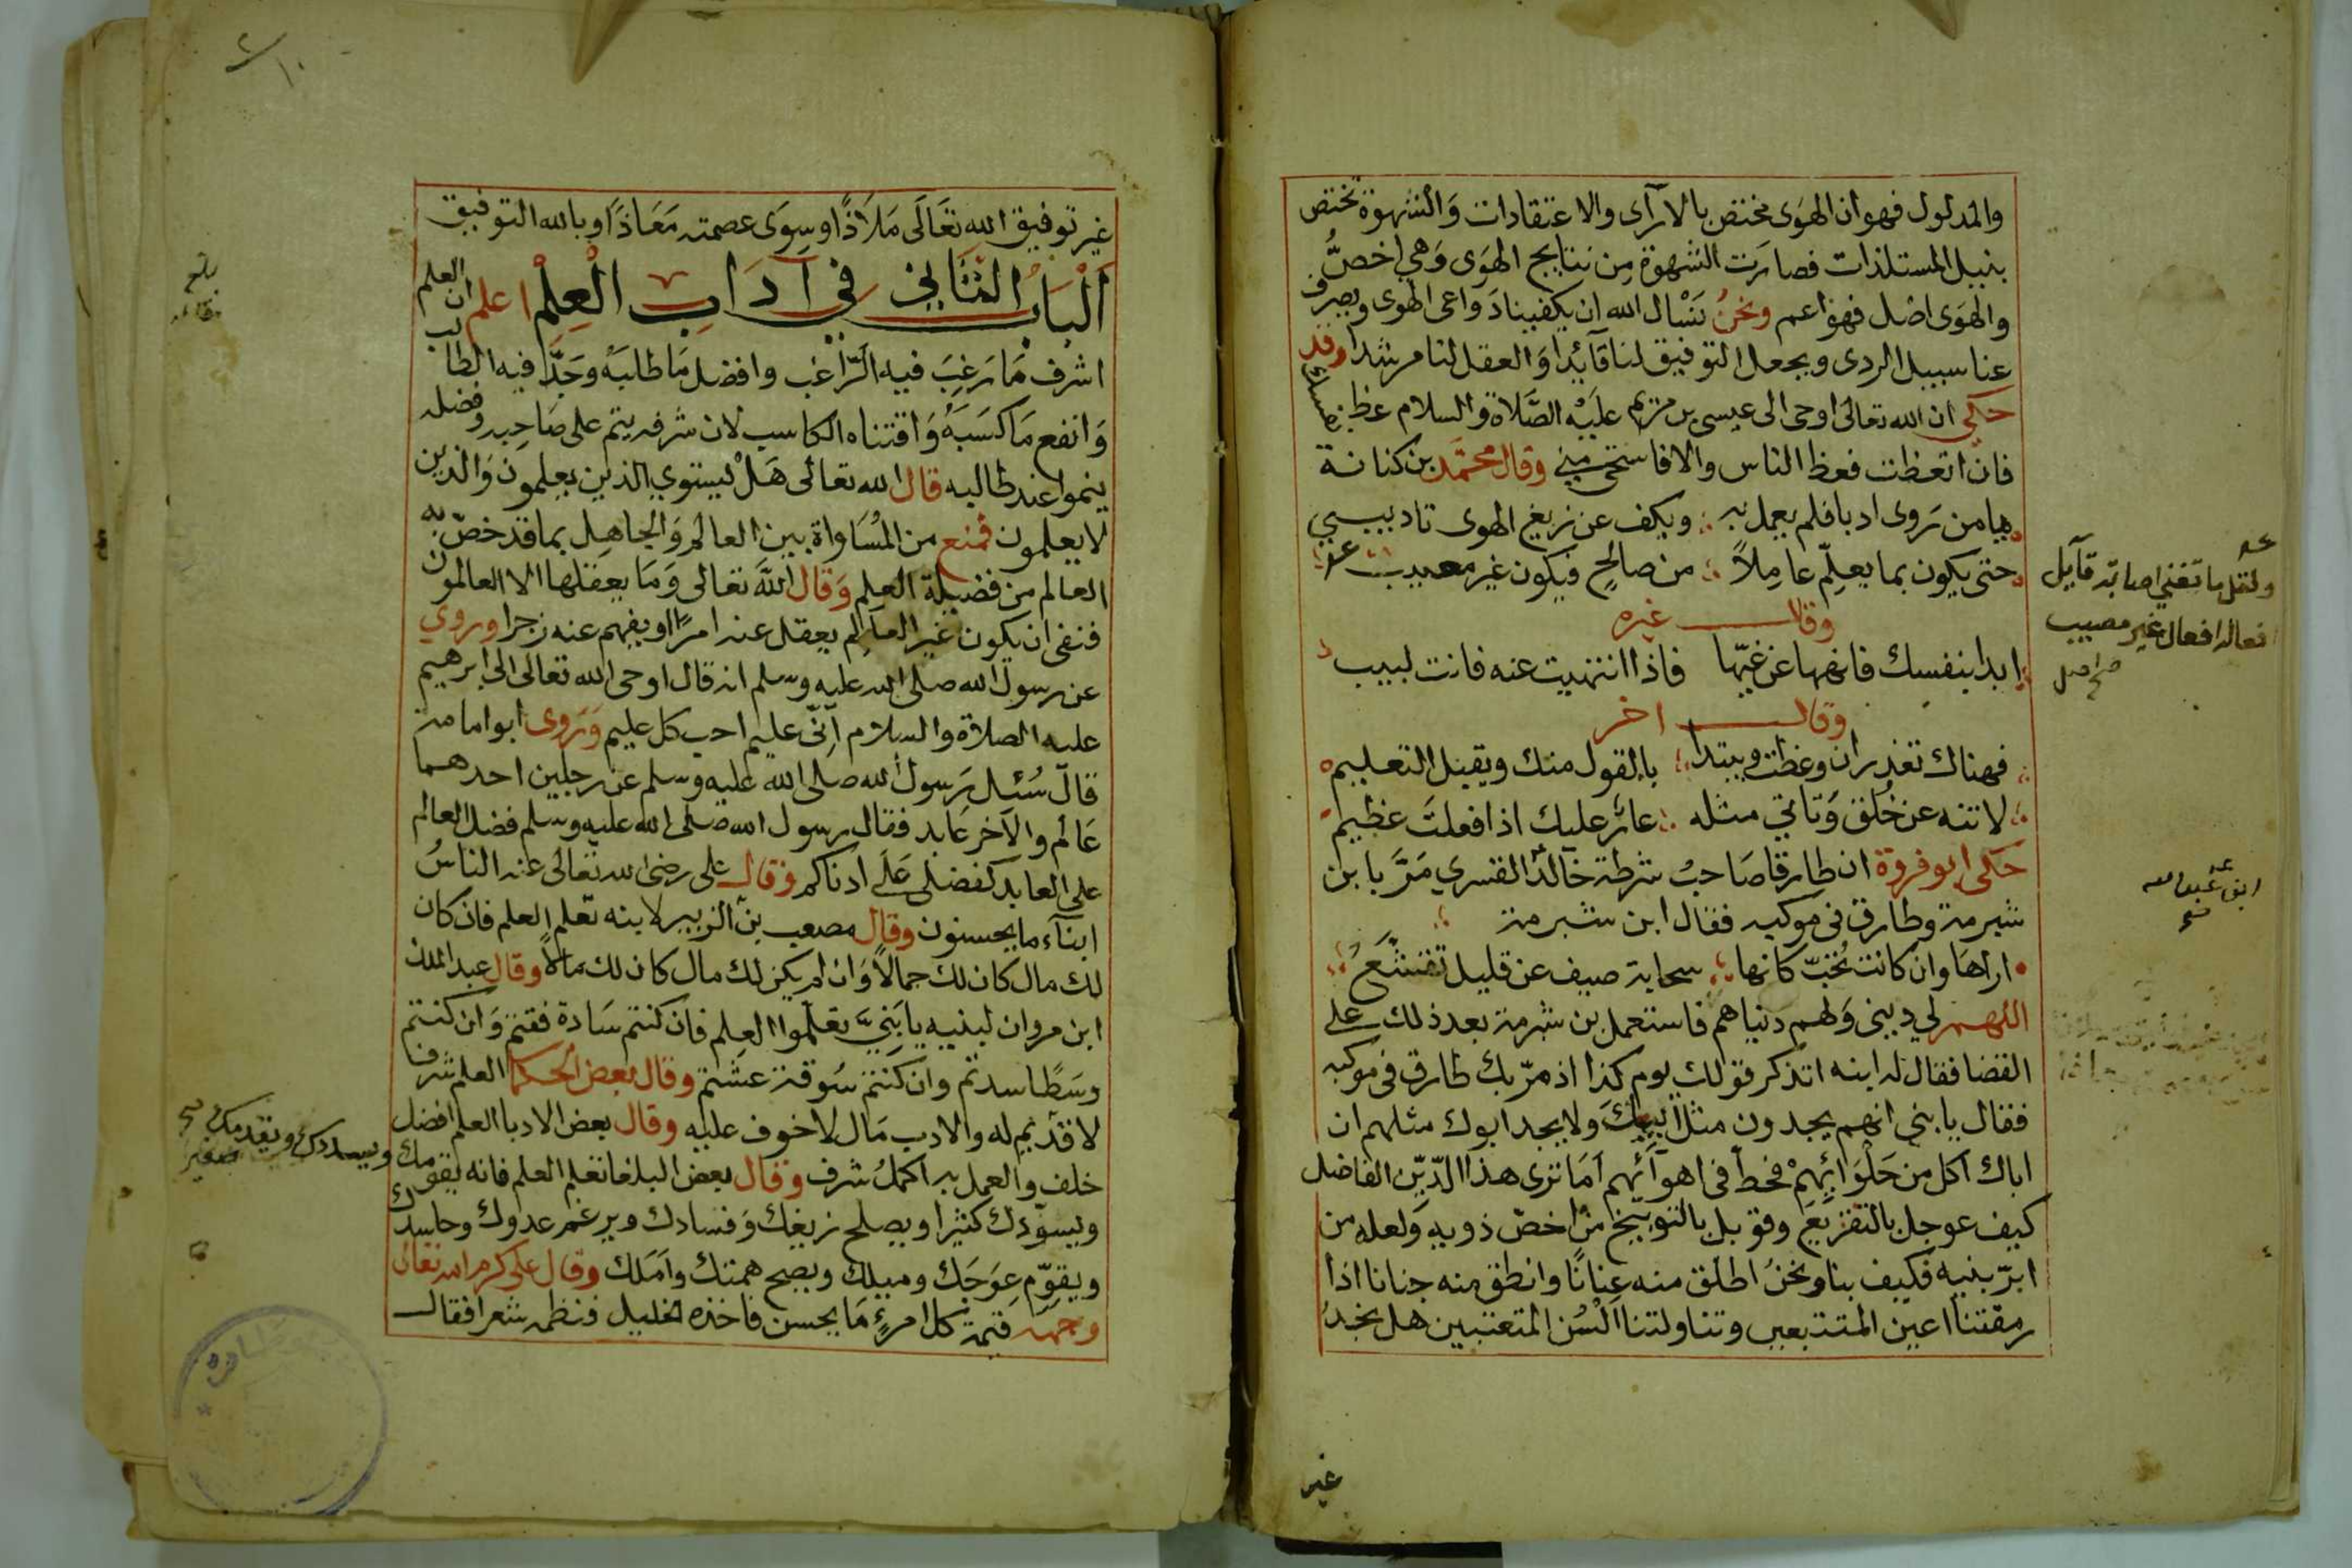 والمدلول فهو ان الهوى مختص بالآراى والاعتقادات والشهوة تختص
بنيل المستلذات فصارت الشهوة من نتايج الهوى وهي اخصّ
والهوى اصل فهو اعم ونحن نسْال الله ان يكفينا دواعى الهوى ويصرف
عنا سبيل الردى ويجعل التوفيق لنا قآئدا والعقل لنا مرشدا وقد
حكي ان الله تعالى اوحى الى عيسى بن مريم عليه الصَّلاة والسلام عظ نفسك
فان اتعظت فعظ الناس والا فاستحى منى وقال محمّد بن كنانة
ما من روى ادبا فلم يعمل به ؛ ويكف عن زيغ الهوى تاديب بي
حتى يكون بما يعلّم عاملاً ؛ من صالحٍ فيكون غير معيب
ولقل ما تغني اصابة قآيل
افعاله افعال غير مصيب
صح اصل
وقال غيره
ابدا بنفسك فانهها عن غيّها فاذا انتهيت عنه فانت لبيب
وقال اخر
فهناك تعذر ان وعظت ويبتدا بالقول منك ويقبل التعليم
لا تنه عن خُلق وَتاتي مثله ؛ عارٌ عليك اذا فعلتَ عظيم
حكى ابو فروة ان طارقا صَاحبُ شرطة خآلد القسري مَرَّ بابن
ابن عبد الله
شبرمة وطارق فى موكبه فقال ابن شبرمة
اراهَا وان كانت تُحبّ كانها سحابة صيف عن قليل تقشّعُ
اللهم لي دينى وَلهم دنياهم فاستعمل بن شبرمة بعد ذلك على
القضا فقال له ابنه اتذكر قولك يوم كذا اذ مرّ بك طارق فى موكبه
فقال يا بني انهم يجدون مثل ابيكَ ولا يجد ابوك مثلهم ان
اباك اكل من حَلْوَائِهمْ فحطّ فى اهوآئهم اَمَا ترى هذا الدّيّن الفاضل
كيف عوجل بالتقريع وقوبل بالتوبيخ من اخصّ ذويه وَلعله من
ابرّ بنيه فكيف بنا ونحنُ اطلق منه عِنانًا وانطق منه جنانا اذا
رمقتنا اعين المتتبعين وتناولتنا اَلْسُن المتعتبين هل نجدُ
غير
غير توفيق الله تعَالَى مَلاَذًا او سِوَى عصمته مَعَاذَا وبالله التوفيق
اَلْبَابُ الثَّاني في آدَابِ الْعِلْمْ اعلم ان العلم
اشرف مَا رَغِبَ فيه الرّاغب وافضل مَا طلبَهُ وَجَدَّ فيه الطالب
وَانفع مَا كسَبَهُ وَاقتناه الكاسب لان شرفه يتم على صَاحبه وفضله
ينموا عند طالبه قال الله تعالى هَلْ يستوي الذين يعلمون وَالذين
لا يعلمون فمنع من المُسَاواة بين العالم وَالجاهل بما قد خصّ به
العالم من فضيلة العلم وَقال اللهَ تعالى وَمَا يعقلها الا العالمون
فنفى ان يكون غير العآلِم يعقل عنه امرًا او يفهم عنه زجرا وروي
عن رسول الله صلى الله عليه وسلم انه قال اوحى الله تعالى الى ابرهيم
عليه الصلاة والسلام اَنّى عليم احب كل عليم وَرَوى ابو امامة
قالَ سُئل رَسول الله صلى الله عليه وسلم عن رجلين احدهما
عَالم والآخر عَابد فقال رسول الله صلى الله عليه وسلم فضل العالم
على العابد كفضلى عَلَى ادناكم وقال على رضى الله تعالى عنه الناسُ
ابنآء ما يحسنون وقال مصعب بن الزبير لابنه تعّلم العلم فان كان
لك مال كان لك جمالاً وَان لم يكن لك مال كان لك مالاً وقال عبد الملك
ابن مروان لبنيه يا بَنِيَّ تعلّموا العِلم فان كنتم سَادة فقتم وَان كنتم
وسَطًا سدتم وان كنتم سُوقة عشتم وقال بعض الحكما العلم شرف
لا قدْيم له والادب مَال لا خوف عليه وقال بعض الادبا العلم افضل
خلف والعمل به اكملُ شرف وقال بعض البلغا تعلم العلم فانه يقومك ويسددك ويقدمك صح
صغير
ويسوّدك كثيرا ويصلح زيغك وَفسادك ويرغم عدوك وحاسدك
ويقوّم عِوَجَك وميلك ويصح همتك وآمَلك وقال على كرم الله تعالى
وجهه قيمة كل امرءٍ مَا يحسن فاخذه الخليل فنظمه شعرا فقال